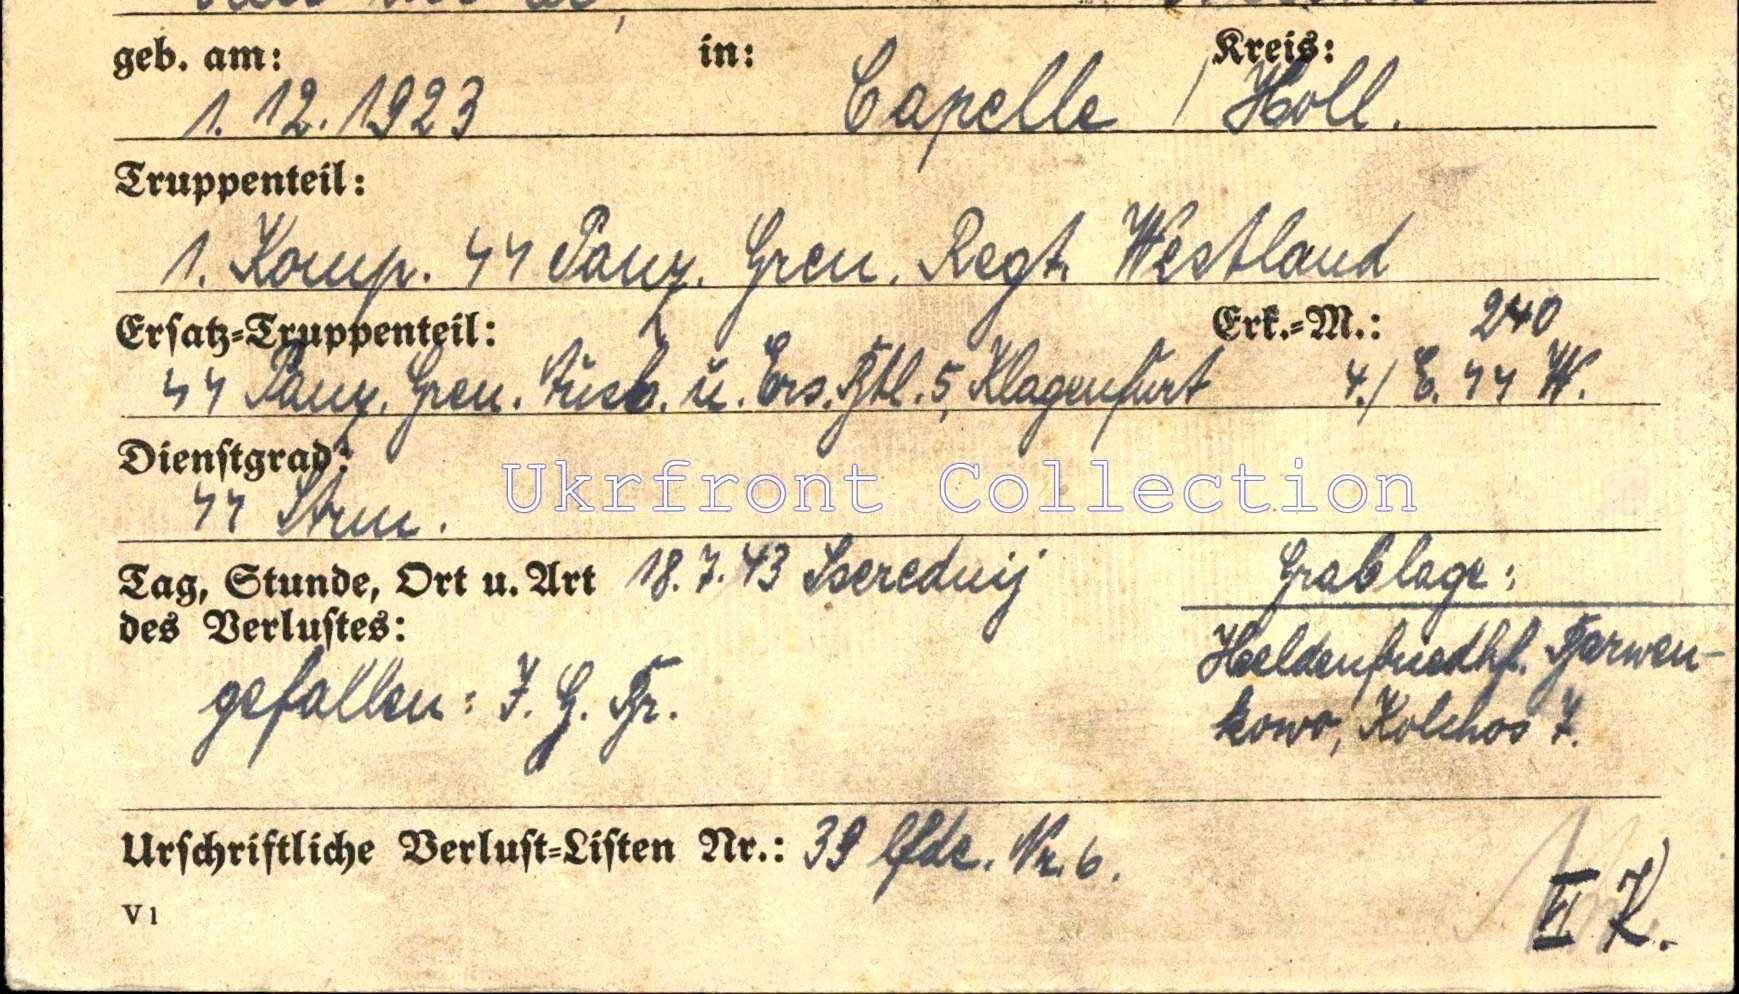 geb. am: in: Kreis:
1. 12. 1923 Capelle / Holl.
Truppenteil:
1. Komp. ᛋᛋ Panz. Gren. Regt. Westland
Ersatz-Truppenteil: Erk.-M.: 240
ᛋᛋ Panz. Gren. Ausb. u. Ers. Btl. 5, Klagenfurt 4./E. ᛋᛋ W.
Dienstgrad:
ᛋᛋ Strm.
Ukrfront Collection
Tag, Stunde, Ort u. Art 18.7.43 Sserednij Grablage:
des Verlustes: Heldenfriedhf. Barwen-
gefallen: I. G. Br. kowo, Kolchos 7.
Urschriftliche Verlust-Listen Nr.: 39 lfde. Nr. 6.
V 1
VI K.